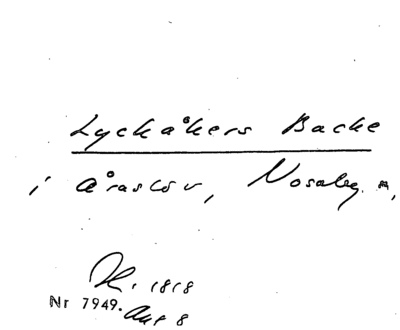 Lyckåkers Backe
i Åraslöv, Nosaby sn,
H. 1818
Nr 7949. Akt 8